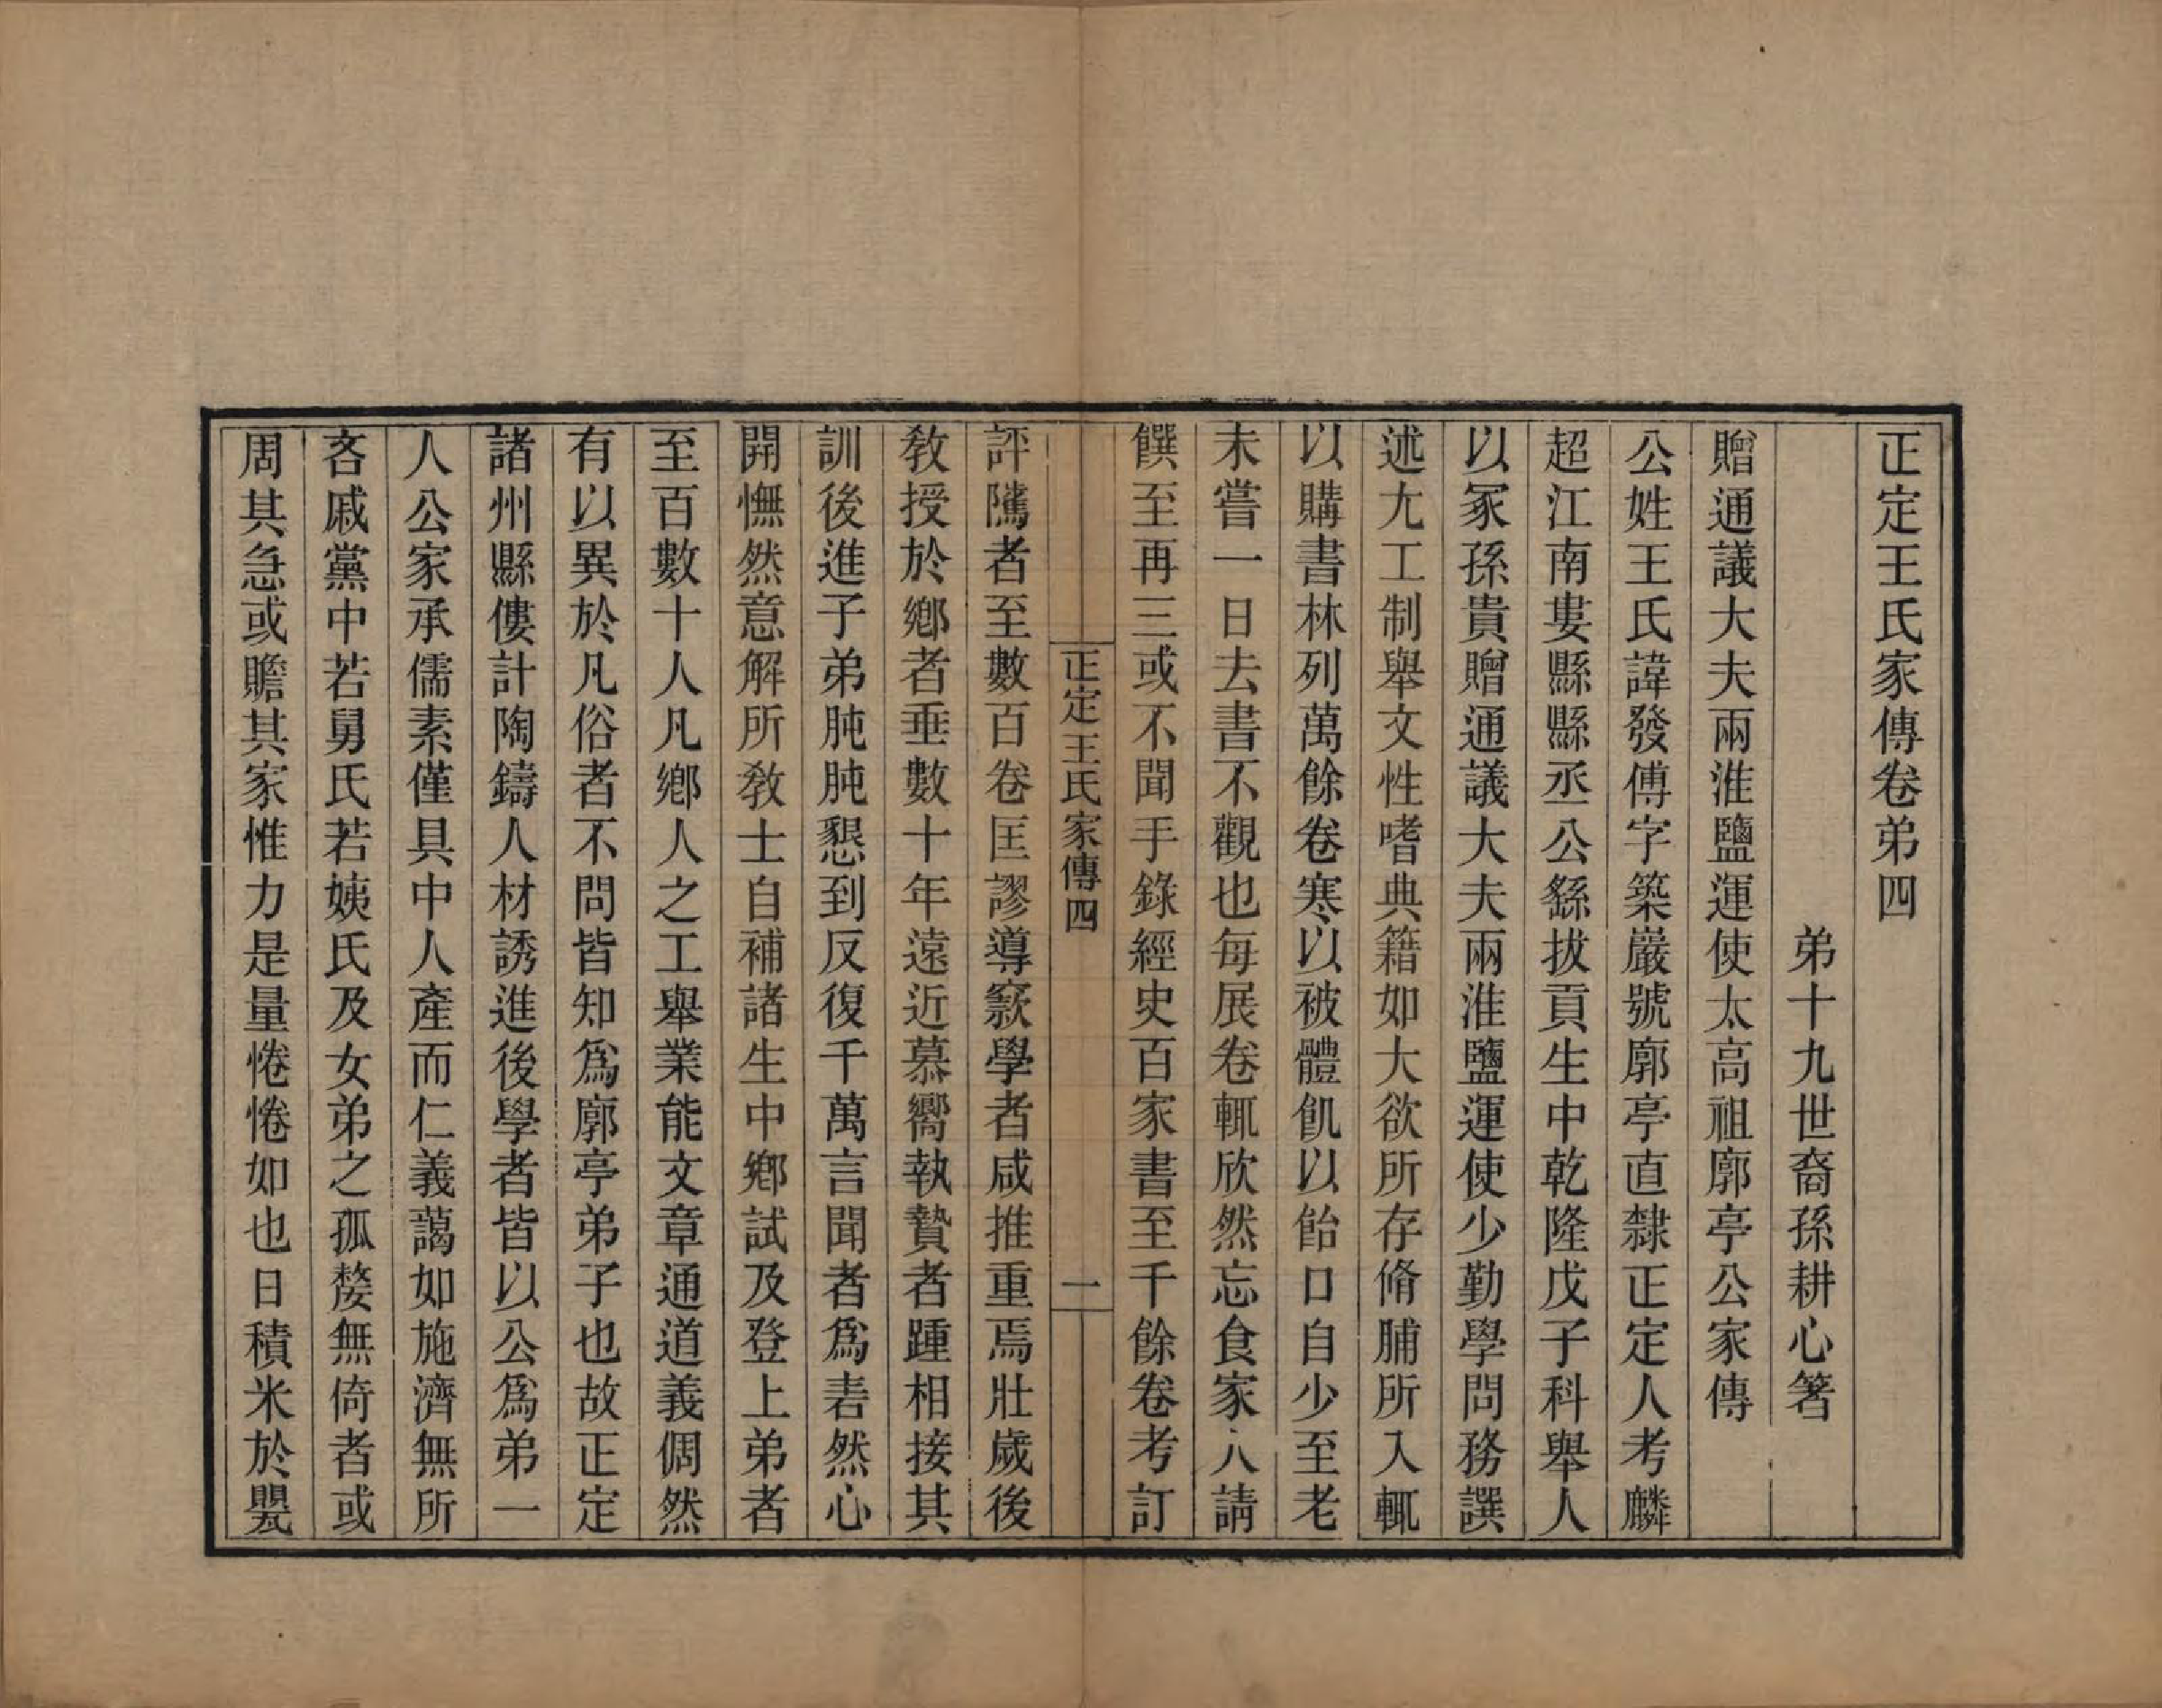 正定王氏家傳卷弟四
弟十九世裔孫耕心箸
贈通議大夫兩淮鹽運使太高祖廓亭公家傳
公姓王氏諱發傅字築巖號廓亭直隸正定人考麟
超江南婁縣縣丞公繇拔貢生中乾隆戊子科舉人
以冢孫貴贈通議大夫兩淮鹽運使少勤學問務譔
述尢工制舉文性嗜典籍如大欲所存脩脯所入輒
以購書書林列萬餘卷寒以被體飢以飴口自少至老
未嘗一日去書不觀也每展卷輒欣然忘食家人請
饌至再三或不聞手錄經史百家書至千餘卷考訂
正定王氏家傳四
一
評隲者至數百卷匡謬導窾學者咸推重焉壯歲後
敎授於鄉者垂數十年遠近慕嚮執贄者踵相接其
訓後進子弟肫肫懇到反復千萬言聞者爲砉然心
開憮然意解所敎士自補諸生中鄉試及登上弟者
至百數十人凡鄉人之工舉業能文章通道義倜然
有以異於凡俗者不問皆知爲廓亭弟子也故正定
諸州縣僂計陶鑄人材誘進後學者皆以公爲弟一
人公家承儒素僅具中人產而仁義藹如施濟無所
吝戚黨中若舅氏若姨氏及女弟之孤嫠無倚者或
周其急或贍其家惟力是量惓惓如也日積米於甖